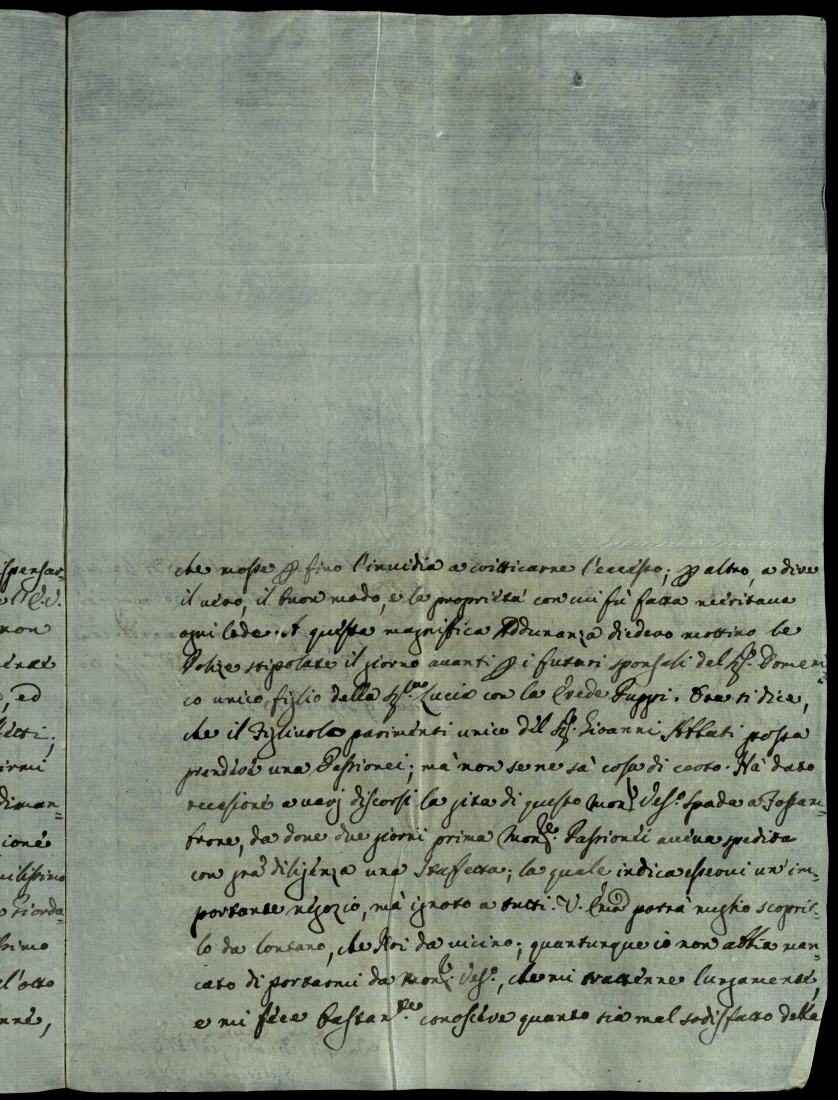 spensar-
e l'Ev.
non
, ed
;
irmi
diman-
cioné
uilissimo
e ricorda-
ssimo
l'otto
nné,
che mosse p fino l'invidia a critticarne l'eccesso; p altro, a dire
il vero, il buon modo, e la proprietà con cui fù fatta meritava
ogni lode. A questa magnifica Addunanza diedero mottivo le
Polize stipolate il giorno avanti p i futuri sponsali del Sig.r Domeni-
co unico figlio della Sig.ra Lucia con la Erede Puppi. Ora si dice,
che il Figlivolo parimenti unico del Sig.r Giovanni Abbati possa
prendere una Passionei; mà non se ne sà cosa di certo. Hà dato
occasione a varj discorsi la gita di questo Mons.r Vesc.o Spada a Fossom-
brone, da dove due giorni prima Mons.r Passionei aveva spedita
con grã diligenza una Staffetta; la quale indica esservi un'im-
portante negozio, mà ignoto a tutti. V. Emza potrà meglio scoprir-
lo da lontano, che Noi da vicino; quantunque io non abbia man-
cato di portarmi da Mons.r Vesc.o, che mi trattenne lungamente,
e mi fece bastan.te conoscere quanto sia mal sodisfatto della